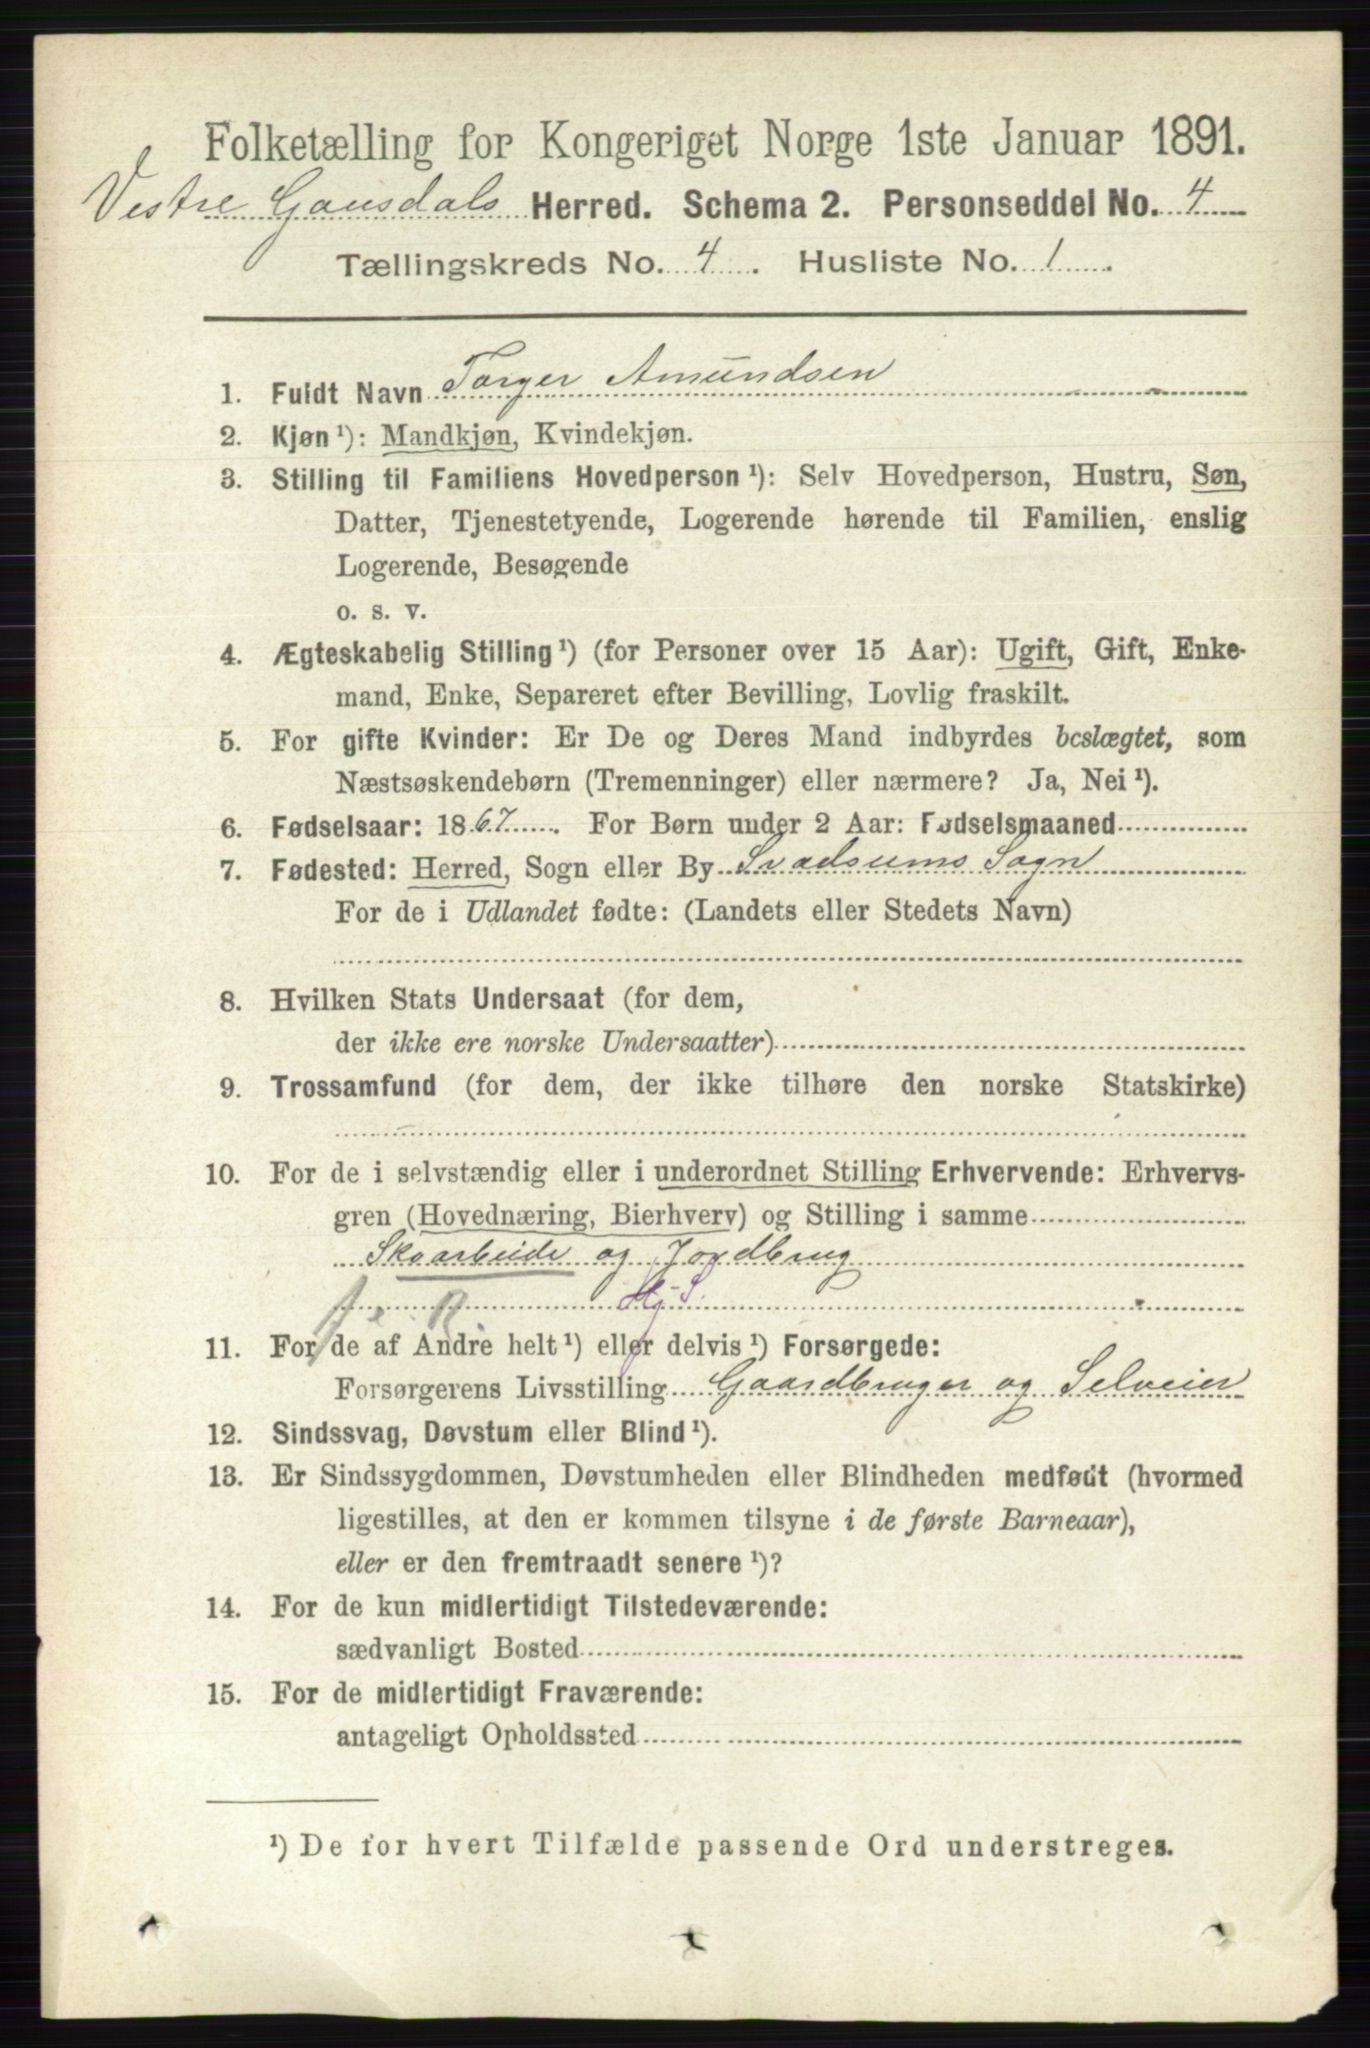 Folketælling for Kongeriget Norge 1ste Januar 1891.
Vestre Gausdals Herred. Schema 2. Personseddel No. 4
Tællingskreds No. 4. Husliste No. 1.
1. Fuldt Navn Torger Amundsen
2. Kjøn¹): Mandkjøn, Kvindekjøn.
3. Stilling til Familiens Hovedperson¹): Selv Hovedperson, Hustru, Søn,
Datter, Tjenestetyende, Logerende hørende til Familien, enslig
Logerende, Besøgende
o. s. v.
4. Ægteskabelig Stilling¹) (for Personer over 15 Aar): Ugift, Gift, Enke-
mand, Enke, Separeret efter Bevilling, Lovlig fraskilt.
5. For gifte Kvinder: Er De og Deres Mand indbyrdes beslægtet, som
Næstsøskendebørn (Tremenninger) eller nærmere? Ja, Nei¹).
6. Fødselsaar: 1867. For Børn under 2 Aar: Fødselsmaaned
7. Fødested: Herred, Sogn eller By Svadsums Sogn
For de i Udlandet fødte: (Landets eller Stedets Navn)
8. Hvilken Stats Undersaat (for dem,
der ikke ere norske Undersaatter)
9. Trossamfund (for dem, der ikke tilhøre den norske Statskirke)
10. For de i selvstændig eller i underordnet Stilling Erhvervende: Erhvervs-
gren (Hovednæring, Bierhverv) og Stilling i samme
Skoarbeide og Jordbrug
11. For de af Andre helt¹) eller delvis¹) Forsørgede:
Forsørgerens Livsstilling Gaardbruger og Selveier
12. Sindssvag, Døvstum eller Blind¹).
13. Er Sindssygdommen, Døvstumheden eller Blindheden medfødt (hvormed
ligestilles, at den er kommen tilsyne i de første Barneaar),
eller er den fremtraadt senere¹)?
14. For de kun midlertidigt Tilstedeværende:
sædvanligt Bosted
15. For de midlertidigt Fraværende:
antageligt Opholdssted
¹) De for hvert Tilfælde passende Ord understreges.